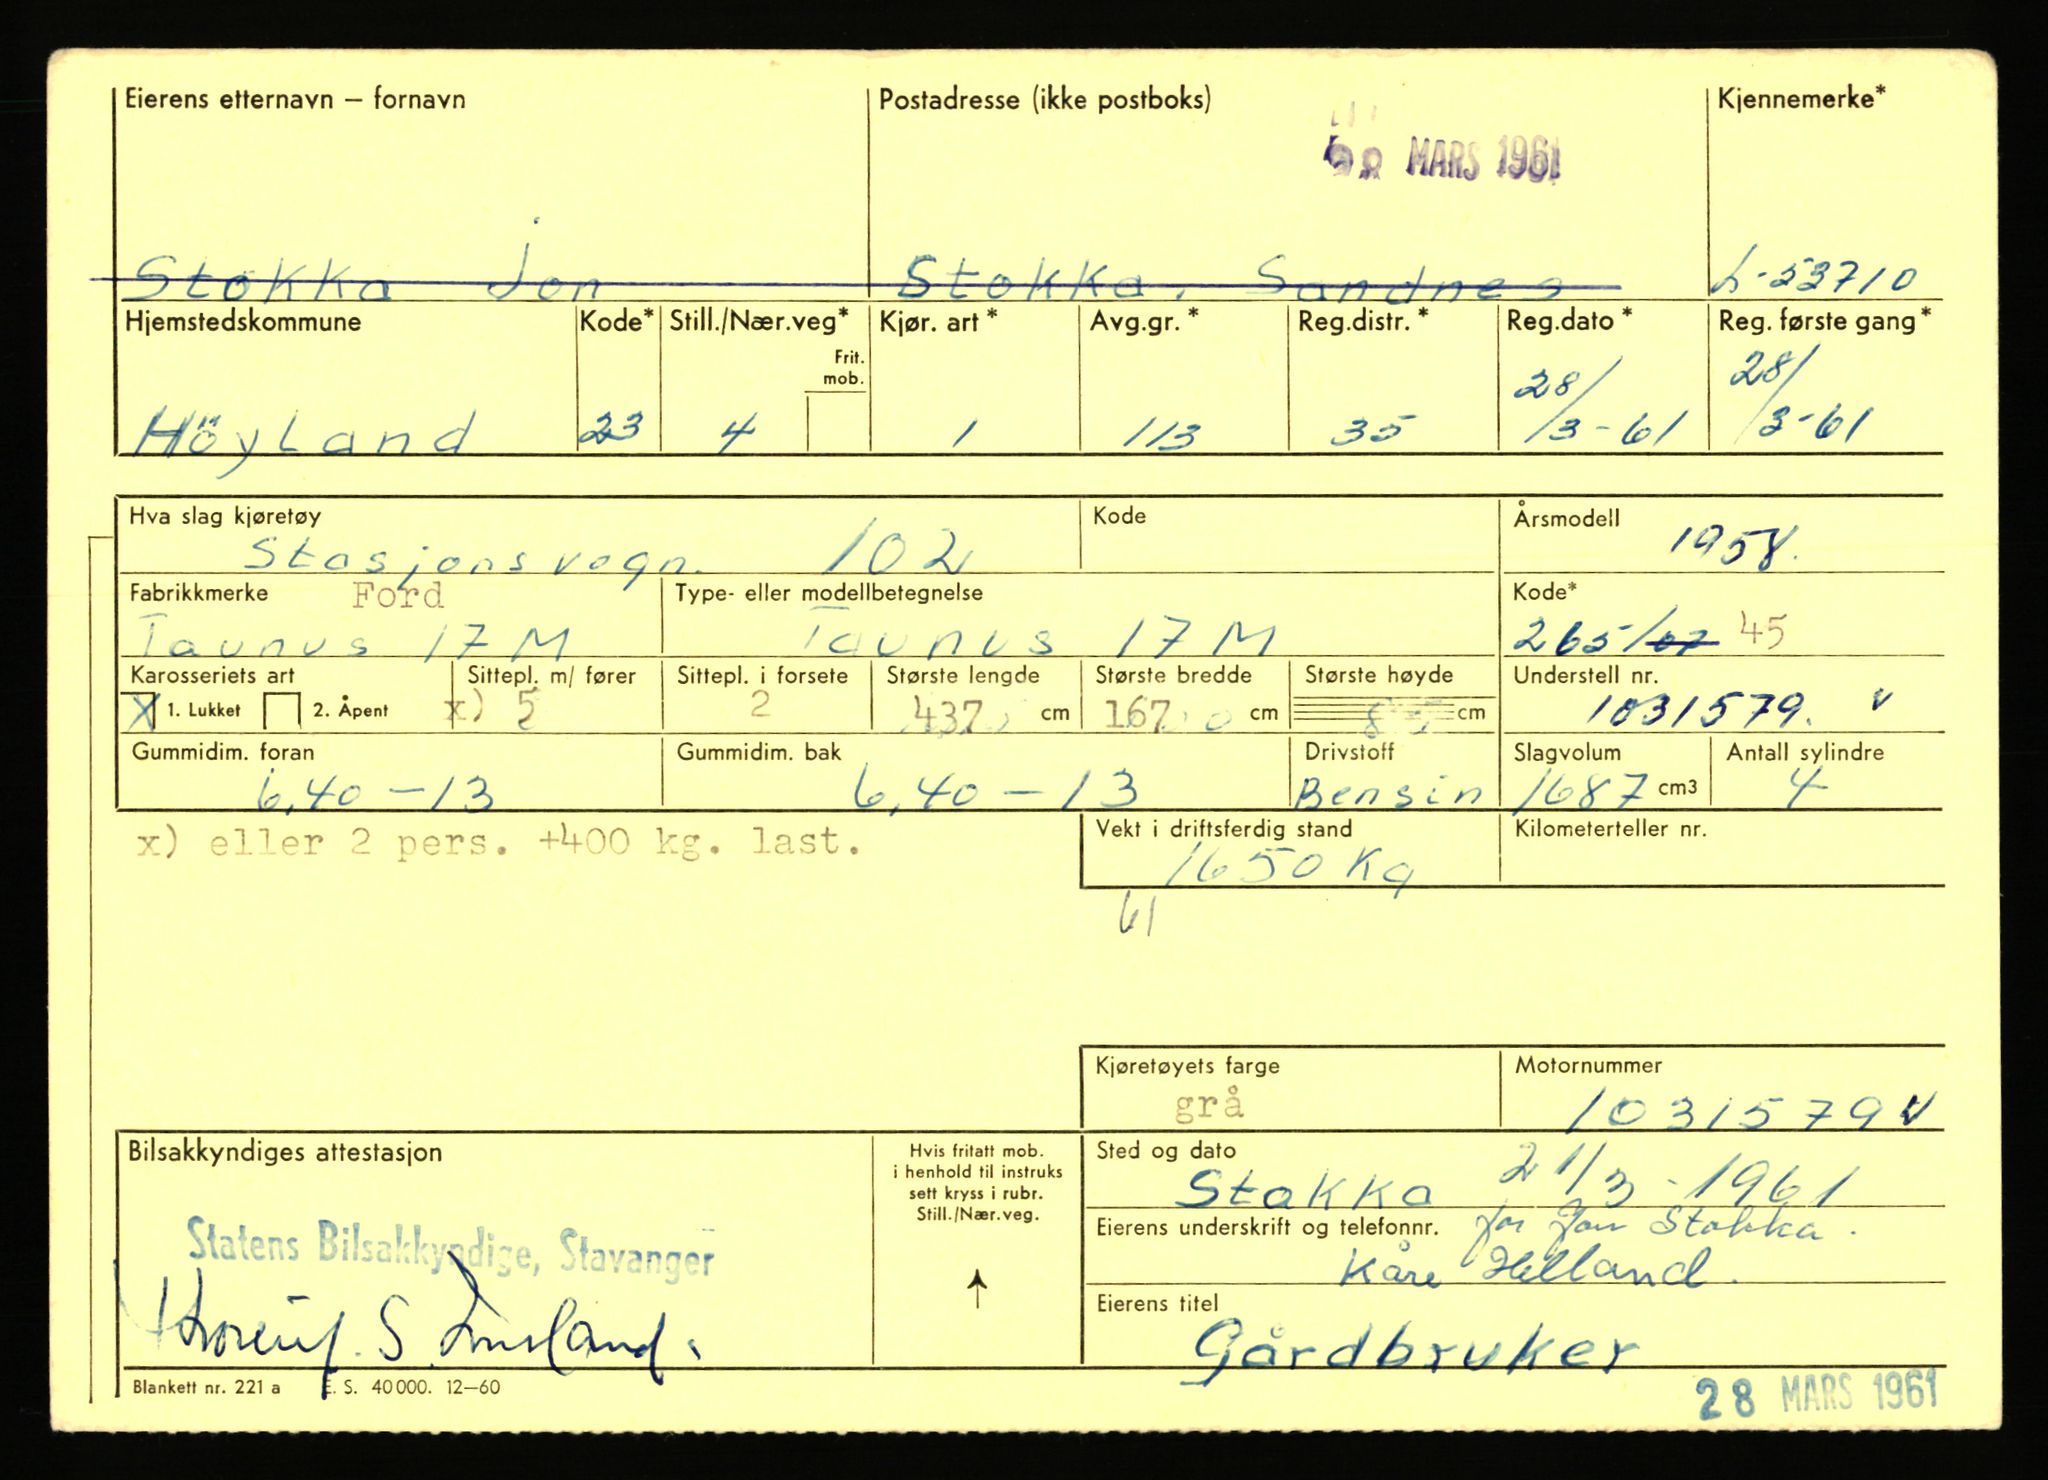 Eierens etternavn – fornavn Postadresse (ikke postboks) Kjennemerke*
MARS 1961
Stokka Jon Stokka, Sandnes L-53710
Hjemstedskommune Kode* Still./Nær.veg* Kjør. art* Avg.gr.* Reg.distr.* Reg.dato* Reg. første gang*
Frit.
mob.
Höyland 23 4 1 113 35 28/3-61 28/3-61
Hva slag kjøretøy Kode Årsmodell
Stasjonsvogn. 102 1958.
Fabrikkmerke Ford Type- eller modellbetegnelse Kode*
Taunus 17 M Taunus 17 M 265/07 45
Karosseriets art Sittepl. m/ fører Sittepl. i forsete Største lengde Største bredde Største høyde Understell nr.
X 1. Lukket 2. Åpent x) 5 2 437 cm 167 cm cm 1031579. v
Gummidim. foran Gummidim. bak Drivstoff Slagvolum Antall sylindre
6,40 – 13 6,40 – 13 Bensin 1687 cm3 4
x) eller 2 pers. +400 kg. last. Vekt i driftsferdig stand Kilometerteller nr.
1650 Kg
61
Kjøretøyets farge Motornummer
grå 1031579 v
Bilsakkyndiges attestasjon Hvis fritatt mob.
i henhold til instruks
sett kryss i rubr.
Still./Nær.veg.
Sted og dato
Stokka 21/3-1961
Eierens underskrift og telefonnr. for Jon Stokka.
Statens Bilsakkyndige, Stavanger
Kåre Helland.
Eierens titel
Gårdbruker
Blankett nr. 221 a E. S. 40 000. 12–60
28 MARS 1961